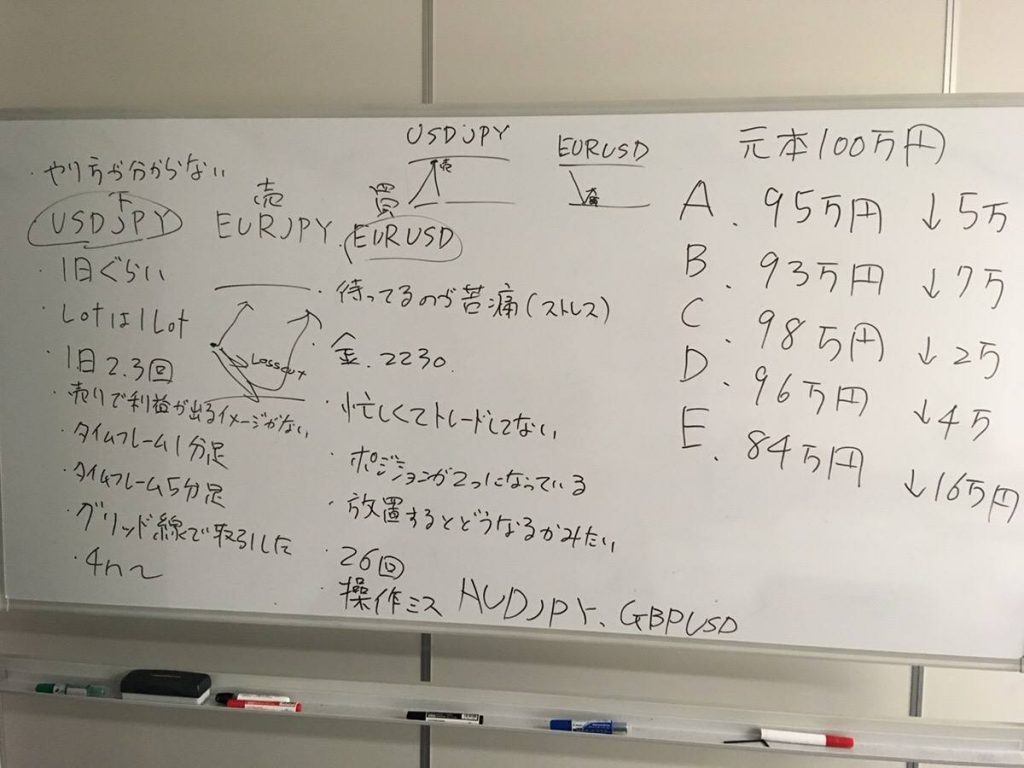 ・やり方が分からない
下
USDJPY
売
EURJPY.
買
EURUSD
・1日ぐらい
・Lotは1Lot
・1日2.3回
・売りで利益が出るイメージがない
・タイムフレーム1分足
・タイムフレーム5分足
・グリッド線で取引した
Losscut
・待ってるのが苦痛(ストレス)
・金.2230.
・忙しくてトレードしてない
・ポジションが2つになっている
・放置するとどうなるかみたい
・26回
・操作ミス AUDJPY、GBPUSD
USDJPY
売
EURUSD
元本100万円
A. 95万円 ↓5万
B. 93万円 ↓7万
C. 98万円 ↓2万
D. 96万円 ↓4万
E. 84万円 ↓16万円